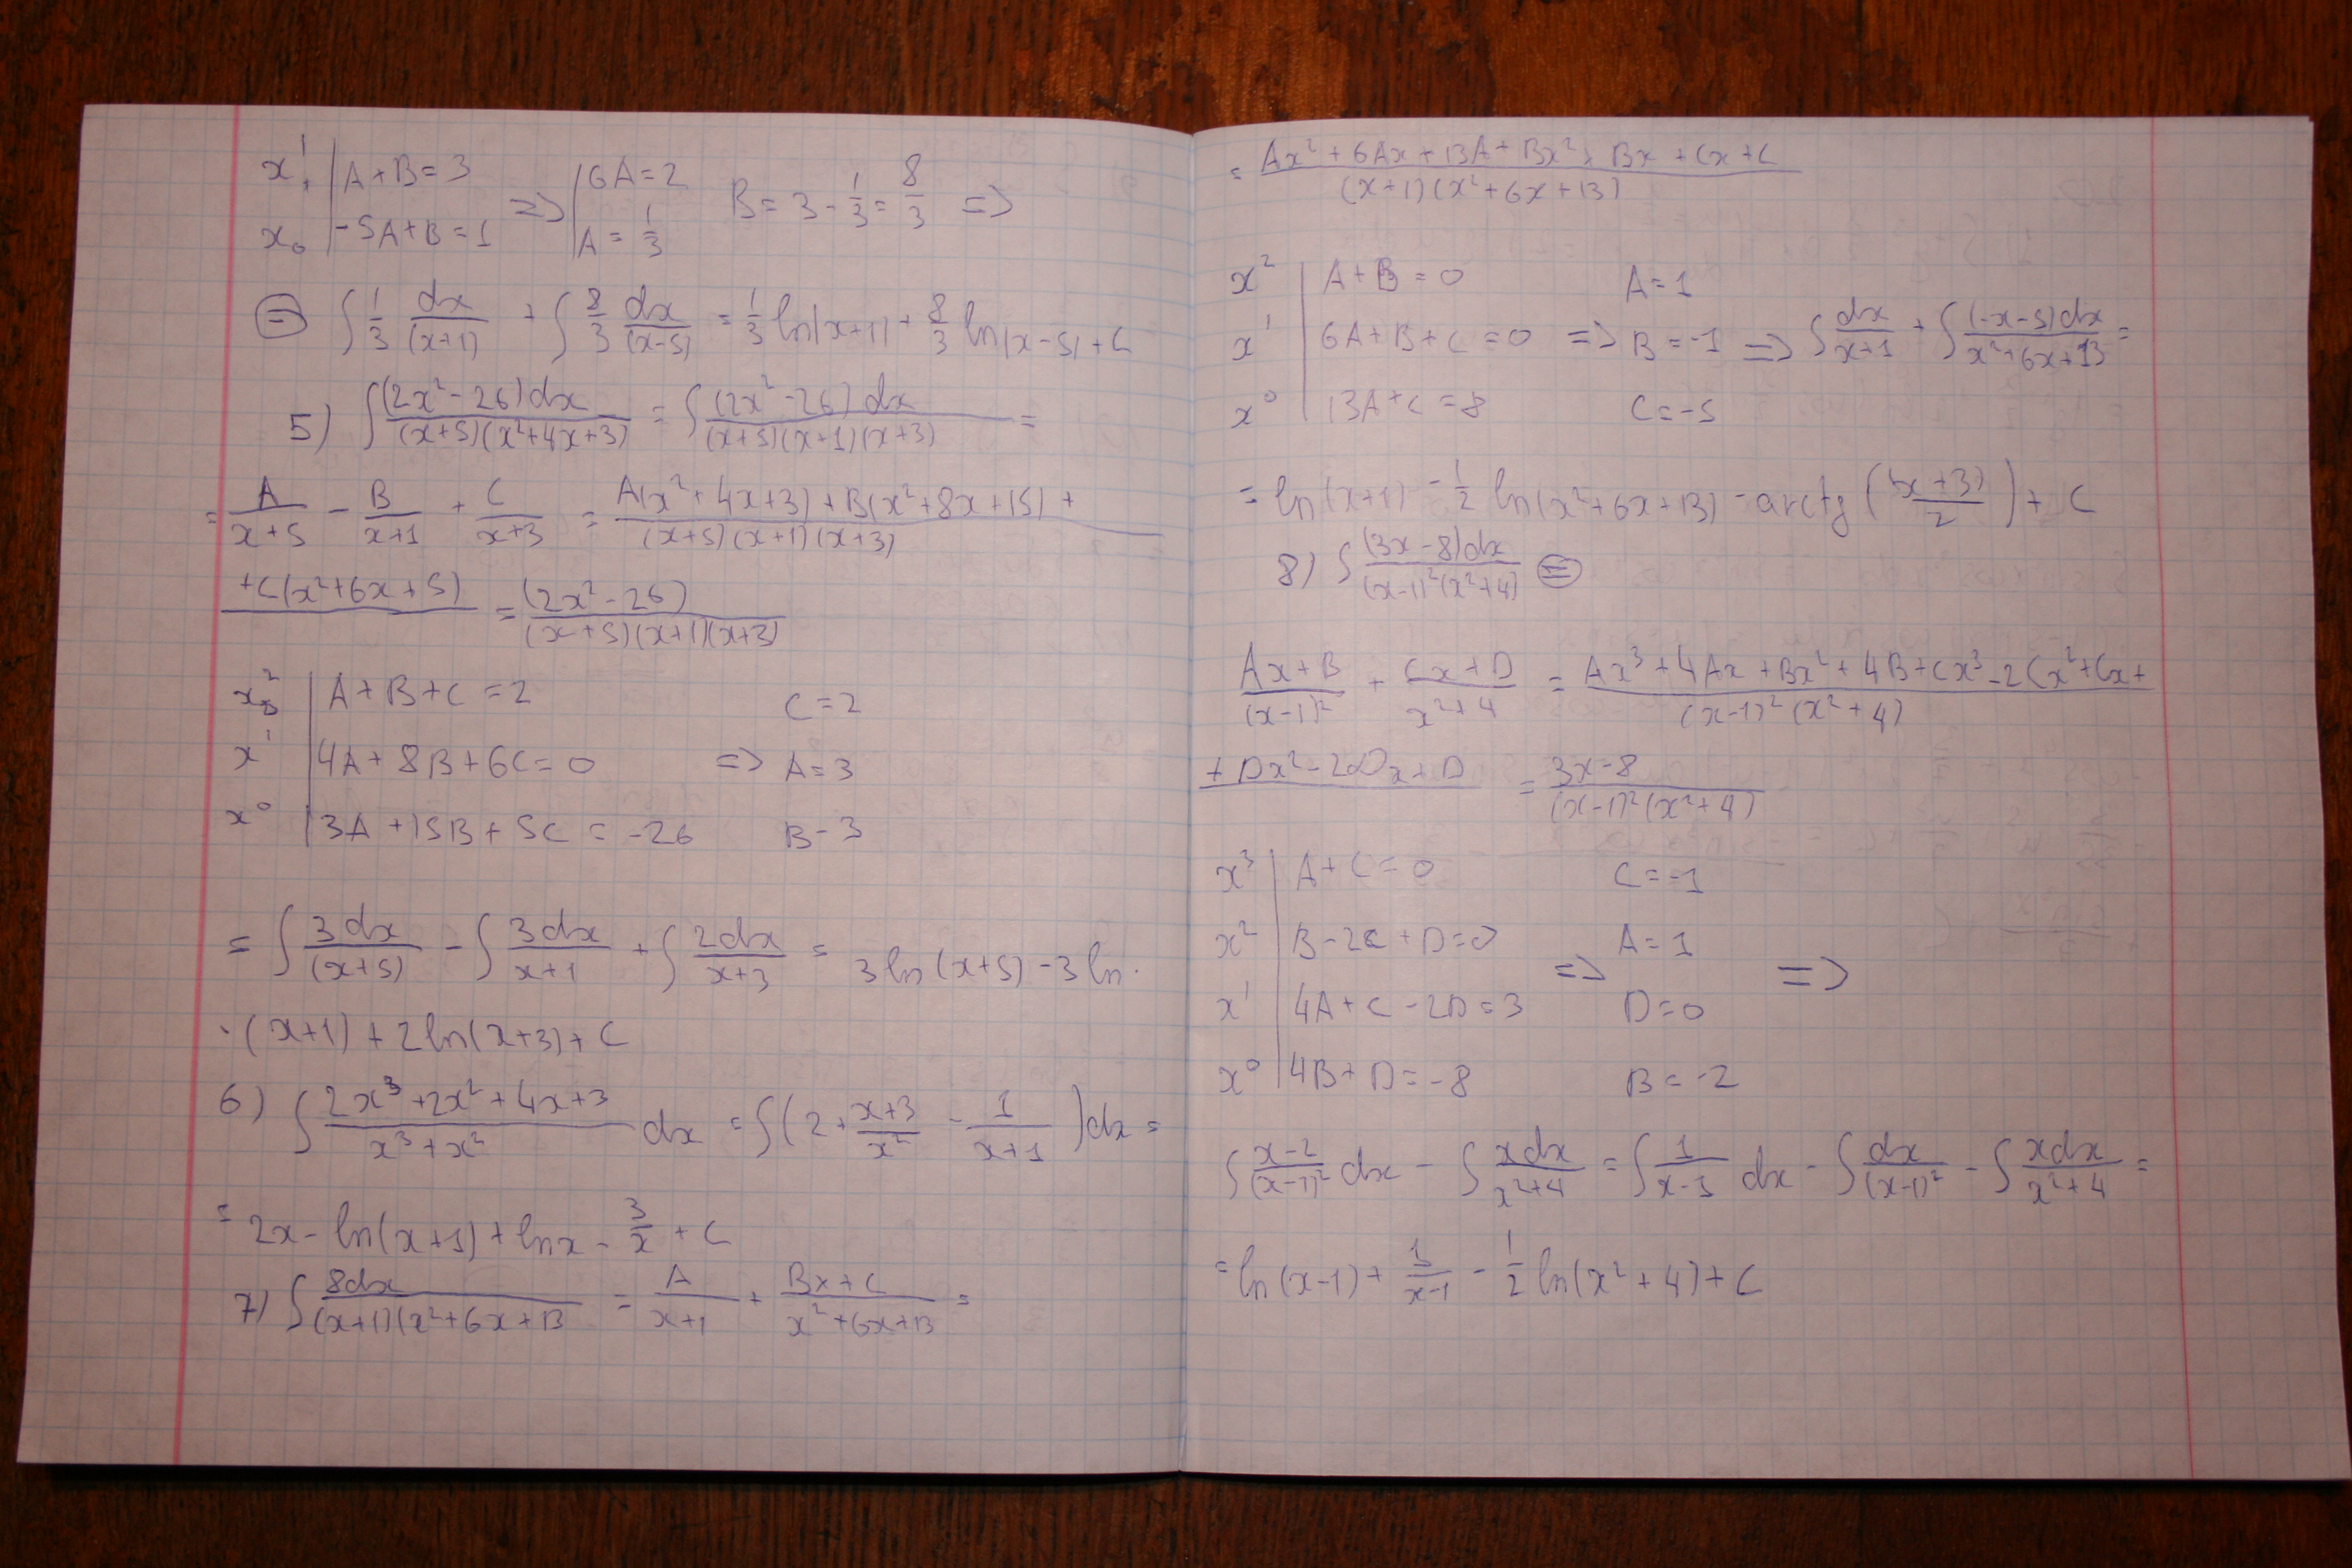 x¹ | A+B=3 => | 6A=2 B=3-1/3=8/3 =>
x₀ | -5A+B=1 | A=1/3
(=) ∫ 1/3 dx/(x+1) + ∫ 8/3 dx/(x-5) = 1/3 ln|x+1| + 8/3 ln|x-5| + C
5) ∫ (2x²-26)dx/((x+5)(x²+4x+3)) = ∫ (2x²-26)dx/((x+5)(x+1)(x+3)) =
= A/(x+5) - B/(x+1) + C/(x+3) = A(x²+4x+3)+B(x²+8x+15)+ / (x+5)(x+1)(x+3)
+C(x²+6x+5) = (2x²-26)/((x+5)(x+1)(x+3))
x² | A+B+C=2 C=2
x¹ | 4A+8B+6C=0 => A=3
x⁰ | 3A+15B+5C=-26 B-3
= ∫ 3dx/(x+5) - ∫ 3dx/(x+1) + ∫ 2dx/(x+3) = 3ln(x+5)-3ln·
·(x+1)+2ln(x+3)+C
6) ∫ (2x³+2x²+4x+3)/(x³+x²) dx = ∫(2+(x+3)/x² - 1/(x+1))dx =
= 2x-ln(x+1)+lnx-3/x+C
7) ∫ 8dx/((x+1)(x²+6x+13) = A/(x+1) + (Bx+C)/(x²+6x+13) =
= (Ax²+6Ax+13A+Bx²+Bx+Cx+C)/((x+1)(x²+6x+13))
x² | A+B=0 A=1
x¹ | 6A+B+C=0 => B=-1 => ∫ dx/(x+1) + ∫ (-x-5)dx/(x²+6x+13) =
x⁰ | 13A+C=8 C=-5
= ln(x+1) - 1/2 ln(x²+6x+13) - arctg((x+3)/2) + C
8) ∫ (3x-8)dx/((x-1)²(x²+4)) (=)
(Ax+B)/(x-1)² + (Cx+D)/(x²+4) = Ax³+4Ax+Bx²+4B+Cx³-2Cx²+Cx+ / (x-1)²(x²+4)
+Dx²-2Dx+D = (3x-8)/((x-1)²(x²+4))
x³ | A+C=0 C=-1
x² | B-2C+D=0 A=1
x¹ | 4A+C-2D=3 => D=0 =>
x⁰ | 4B+D=-8 B=-2
∫ (x-2)/(x-1)² dx - ∫ xdx/(x²+4) = ∫ 1/(x-1) dx - ∫ dx/(x-1)² - ∫ xdx/(x²+4) =
= ln(x-1) + 1/(x-1) - 1/2 ln(x²+4) + C